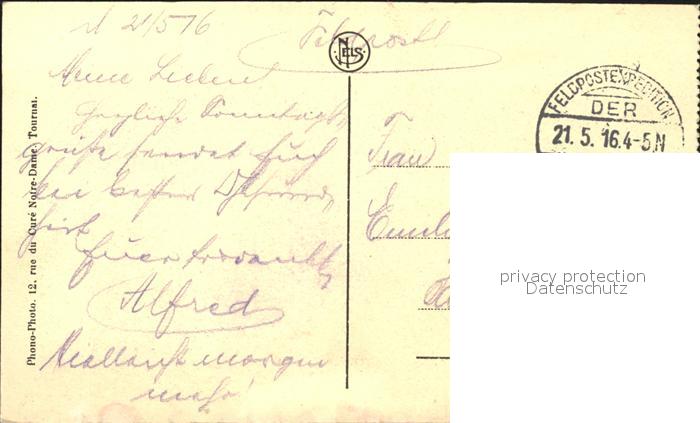 d 21/5 16
Feldpost
Meine Lieben!
Herzliche Sonntags-
grüße sendet Euch
bei bestem
Euer
Alfred
Vielleicht morgen
mehr!
Phono-Photo. 12, rue du Curé Notre-Dame, Tournai.
NELS
Frau
FELDPOSTEXPEDITION
DER
21. 5. 16. 4-5.N
privacy protection
Datenschutz